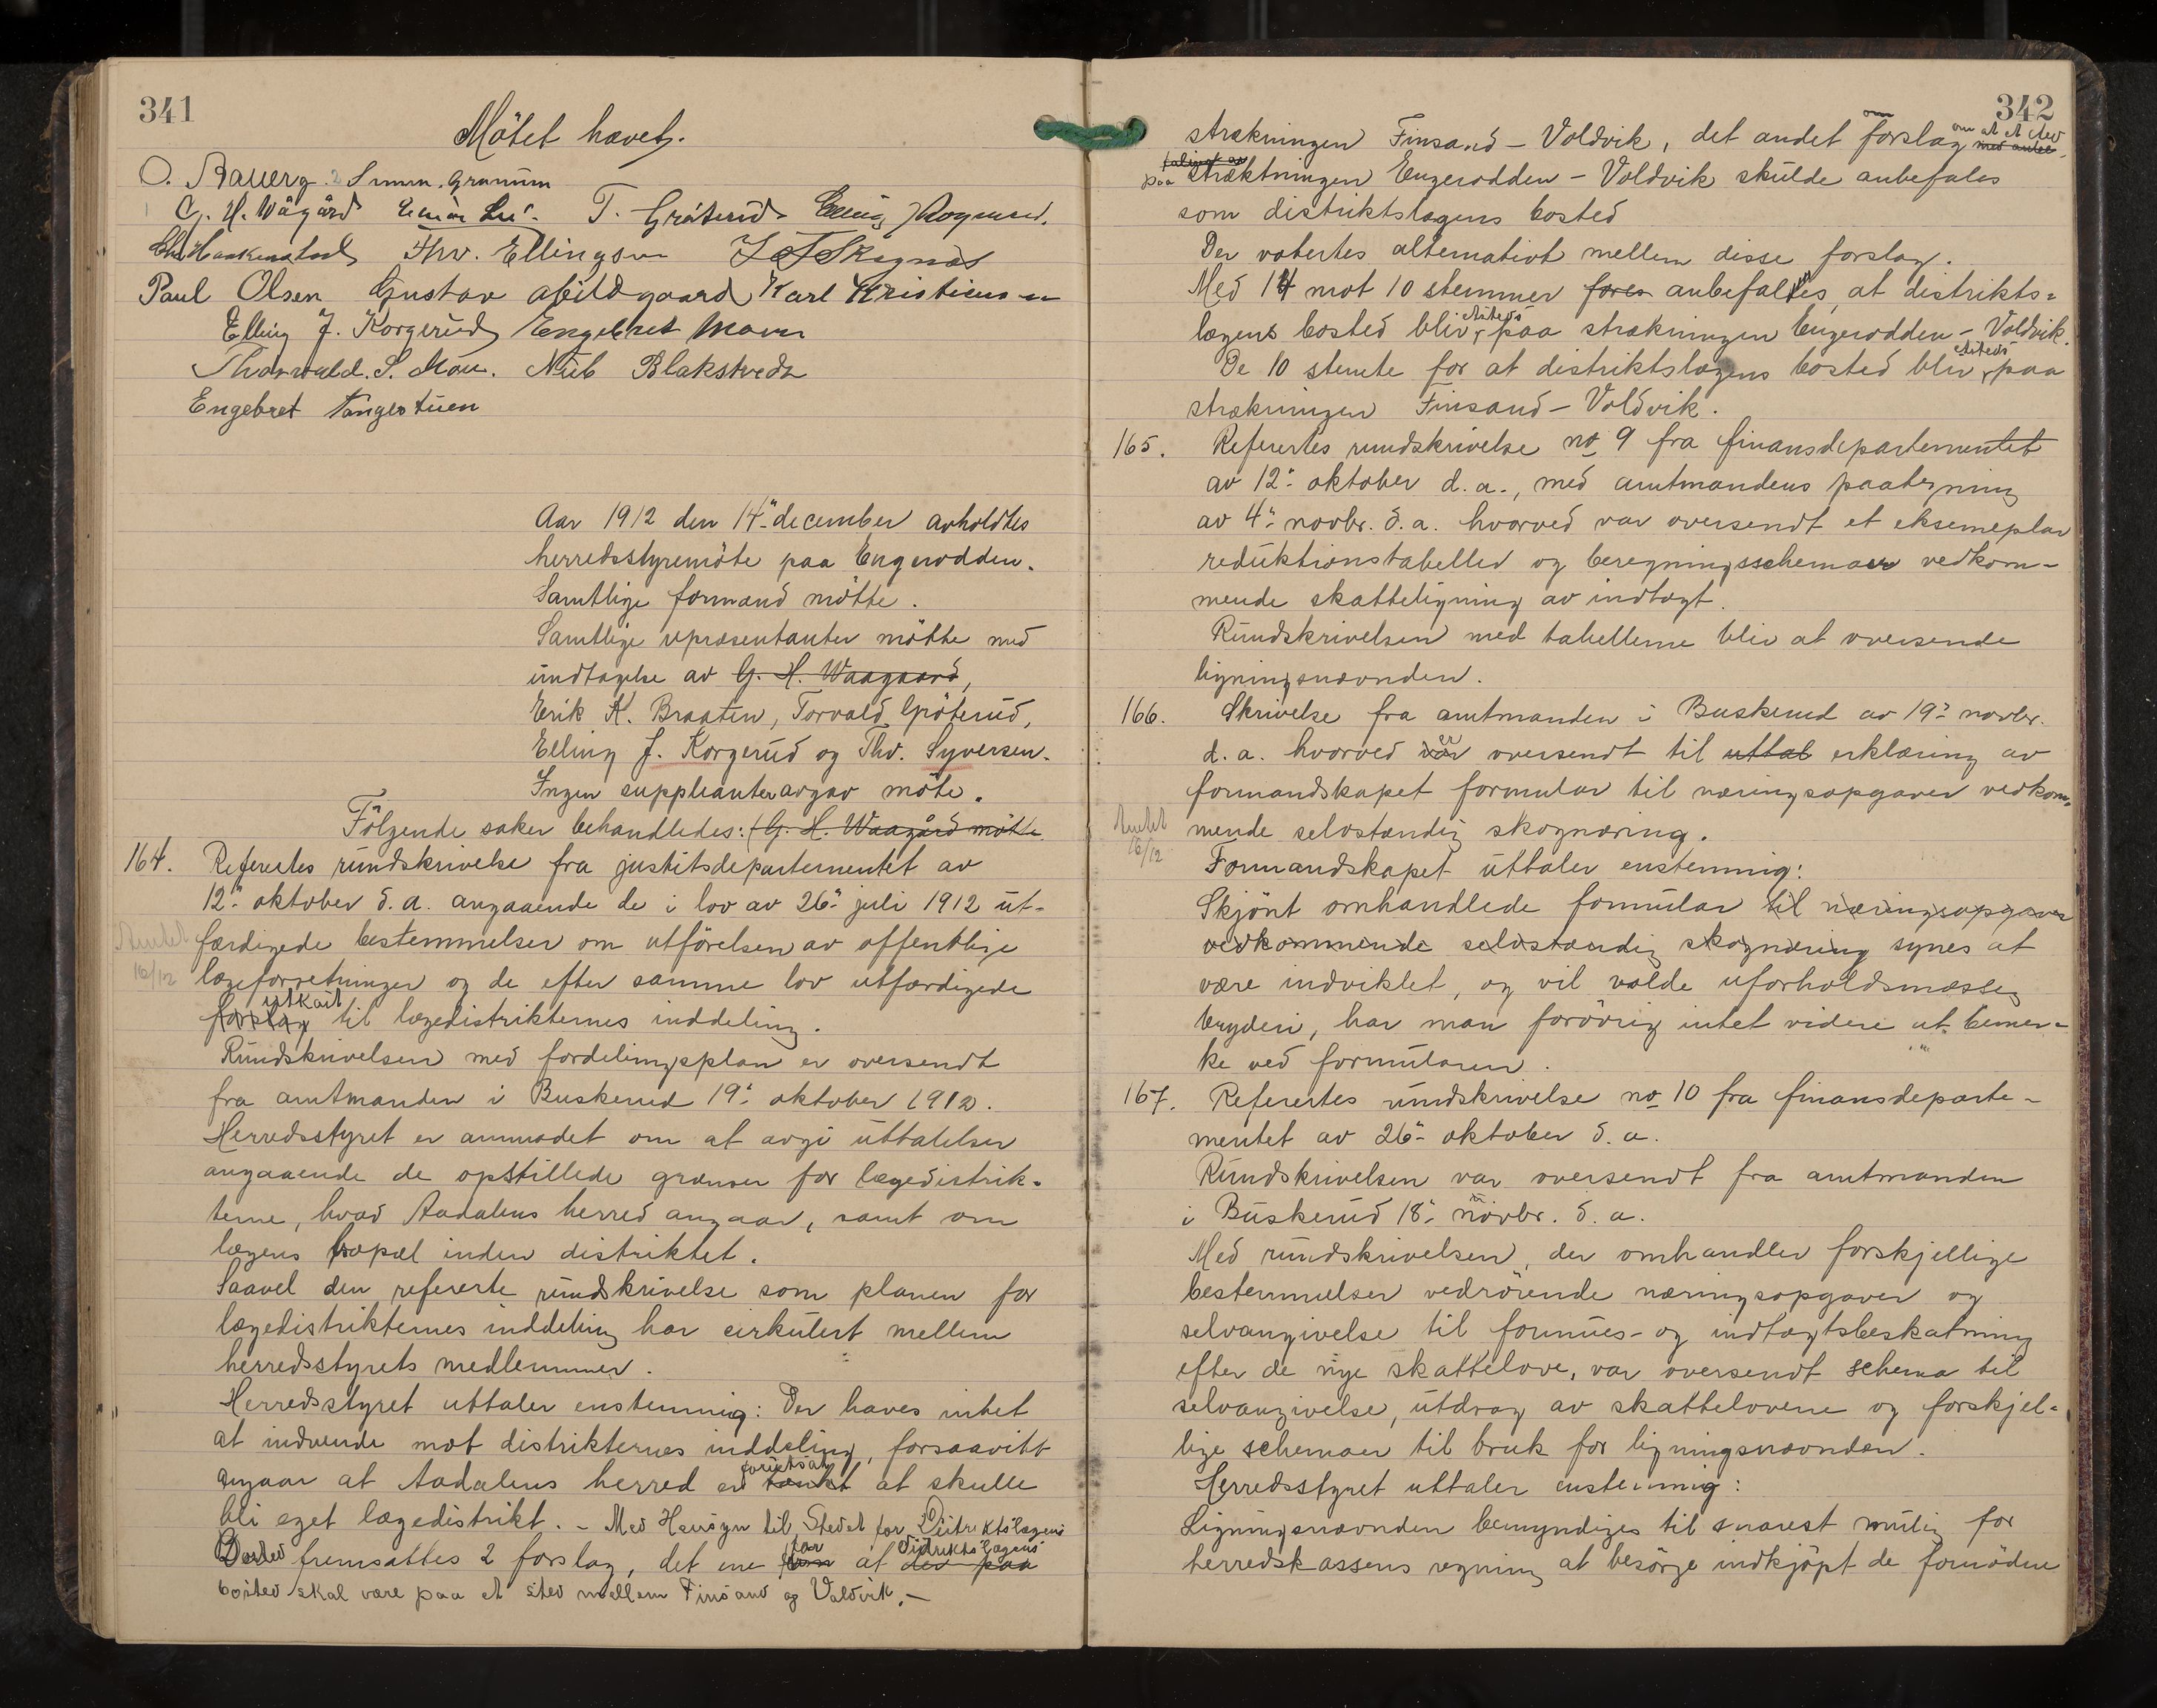 341
Mötet hævet.
O. Rauerg. Simen. Granum
G. H. Wågård Einar Li. T. Gröterud Elling Rognerud.
Chr. Haakenstad Thv. Ellingson
Paul Olsen Gustav Abildgaard Karl Kristiensen
Elling J. Korgerud Engebret Moen
Thorvald. S. Moen. Nub Blakstvedt
Engebret Tangestuen
Aar 1912 den 14.de december avholdtes
herredsstyremöte paa Engerodden.
Samtlige formænd mötte.
Samtlige repræsentanter mötte med
undtagelse av G. H. Waagaard,
Erik K. Braaten, Torvald Gröterud,
Elling J. Korgerud og Thv. Syversen.
Ingen suppleanter avgav möte.
Fölgende saker behandledes: (G. H. Waagård mötte
164. Refertes rundskrivelse fra justitsdepartementet av
12.te oktober d. a. angaaende de i lov av 26.de juli 1912 ut-
færdigede bestemmelser om utförelsen av offentlige
16/12 lægeforretninger og de efter samme lov utfærdigede
utkast
forslag til lægedistrikternes inddeling.
Rundskrivelsen med fordelingsplan er oversendt
fra amtmanden i Buskerud 19.de oktober 1912.
Herredsstyret er anmodet om at avgi uttalelser
angaaende de opstillede grænser for lægedistrik-
terne, hvad Aadalens herred angaar, samt om
lægens bopæl inden distriktet.
Saavel den refererte rundskrivelse som planen for
lægedistrikternes inddeling har cirkulert mellem
herredsstyrets medlemmer.
Herredsstyret uttaler enstemmig: Der haves intet
at indvende mot distrikternes inddeling, forsaavitt
forutsat
angaar at Aadalens herred er tænkt at skulle
bli eget lægedistrikt. - Med Hensyn til Stedet for Distriktslægens
for distriktslægens
Bosted fremsattes 2 forslag, det ene om at der paa
bosted skal være paa et sted mellem Finsand og Valdvik. -
342
om om at et sted
strækningen Finsand - Voldvik, det andet forslag med antal
paa stræktningen Engerodden - Voldvik skulde anbefales
som distriktslægens bosted
Der votertes alternativt mellem disse forslag.
Med 14 mot 10 stemmer foves anbefaltes, at distrikts-
etsteds
lægens bosted blir paa strækningen Engerodden - Voldvik.
etsteds
De 10 stemte for at distriktslægens bosted blir paa
strækningen Finsand - Voldvik.
165. Refertes rundskrivelse no 9 fra finansdepartementet
av 12.te oktober d. a., med amtmandens paategning
av 4.de novbr. d. a. hvorved var oversendt et eksemeplar
reduktionstabeller og beregningsschemaer vedkom-
mende skatteligning av indtægt.
Rundskrivelsen med tabellerne blir at oversende
ligningsnævnden.
166. Skrivelse fra amtmanden i Buskerud av 19.de novbr.
d. a. hvorved er oversendt til uttal erklæring av
formandskapet formular til næringsopgaver vedkom-
16/12 mende selvstændig skognæring.
Formandskapet uttaler enstemmig:
Skjönt omhandlede formular til næringsopgaver
vedkommende selvstændig skognæring synes at
være indviklet, og vil volde uforholdsmæssig
bryderi, har man forövrig intet videre at bemer-
ke ved formularen.
167. Refertes rundskrivelse no 10 fra finansdeparte-
mentet av 26.de oktober d. a.
Rundskrivelsen var oversendt fra amtmanden
i Buskerud 18.de novbr. d. a.
Med rundskrivelsen, der omhandler forskjellige
bestemmelser vedrörende næringsopgaver og
selvangivelse til formues- og indtægtsbeskatning
efter de nye skattelove, var oversendt schema til
selvangivelse, utdrag av skattelovene og forskjel-
lige schemaer til bruk for ligningsnævnden.
Herredsstyret uttaler enstemmig:
Ligningsnævnden bemyndiges til snarest mulig for
herredskassens regning at besörge indkjöpt de fornödne